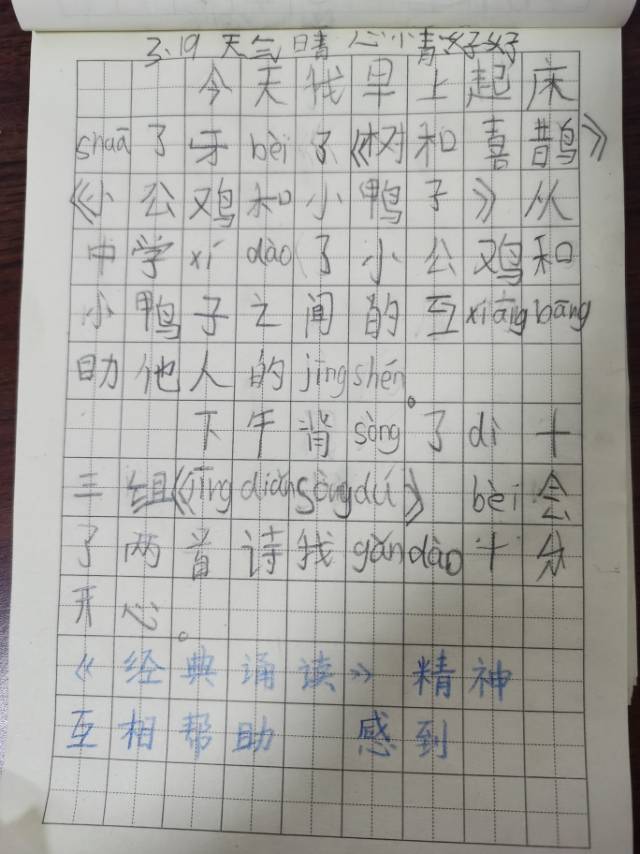 3.19 天气晴 心小青好好
今天我早上起床
shuā了牙bèi了《树和喜鹊》
《小公鸡和小鸭子》从
中学xí dào了小公鸡和
小鸭子之间的互xiāng bāng
助他人的jīng shén。
下午背sòng了dì十
三组《jīng diǎn sòng dú》 bèi会
了两首诗我gǎn dào十分
开心。
《经典诵读》 精神
互相帮助 感到